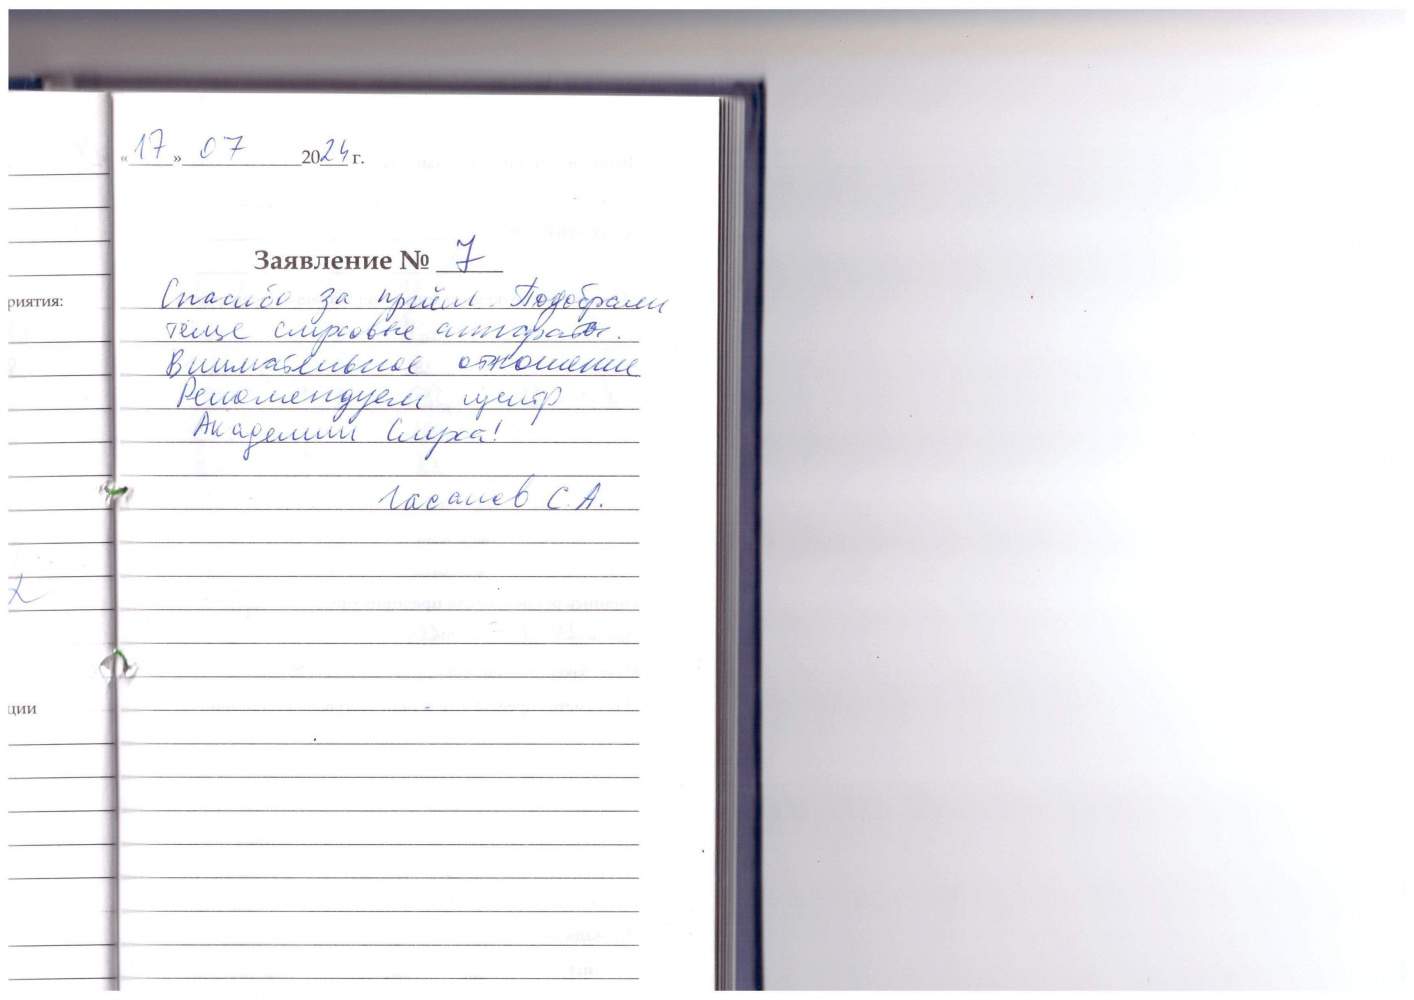 «17» 07 2024 г.
Заявление № 7
риятия:
Спасибо за приём. Подобрали
тёще слуховые аппараты.
Внимательное отношение
Рекомендуем центр
Академии Слуха!
Гасанов С.А.
ции